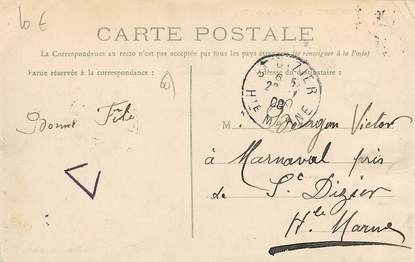 10 €
CARTE POSTALE
La Correspondance au recto n'est pas acceptée par tous les pays étrangers (Se renseigner à la Poste)
Partie réservée à la correspondance :
Adresse du destinataire :
ST DIZIER
22
HTE MARNE
Bonne Fête
M. Victor
à Marnaval près
de St Dizier
Hte Marne